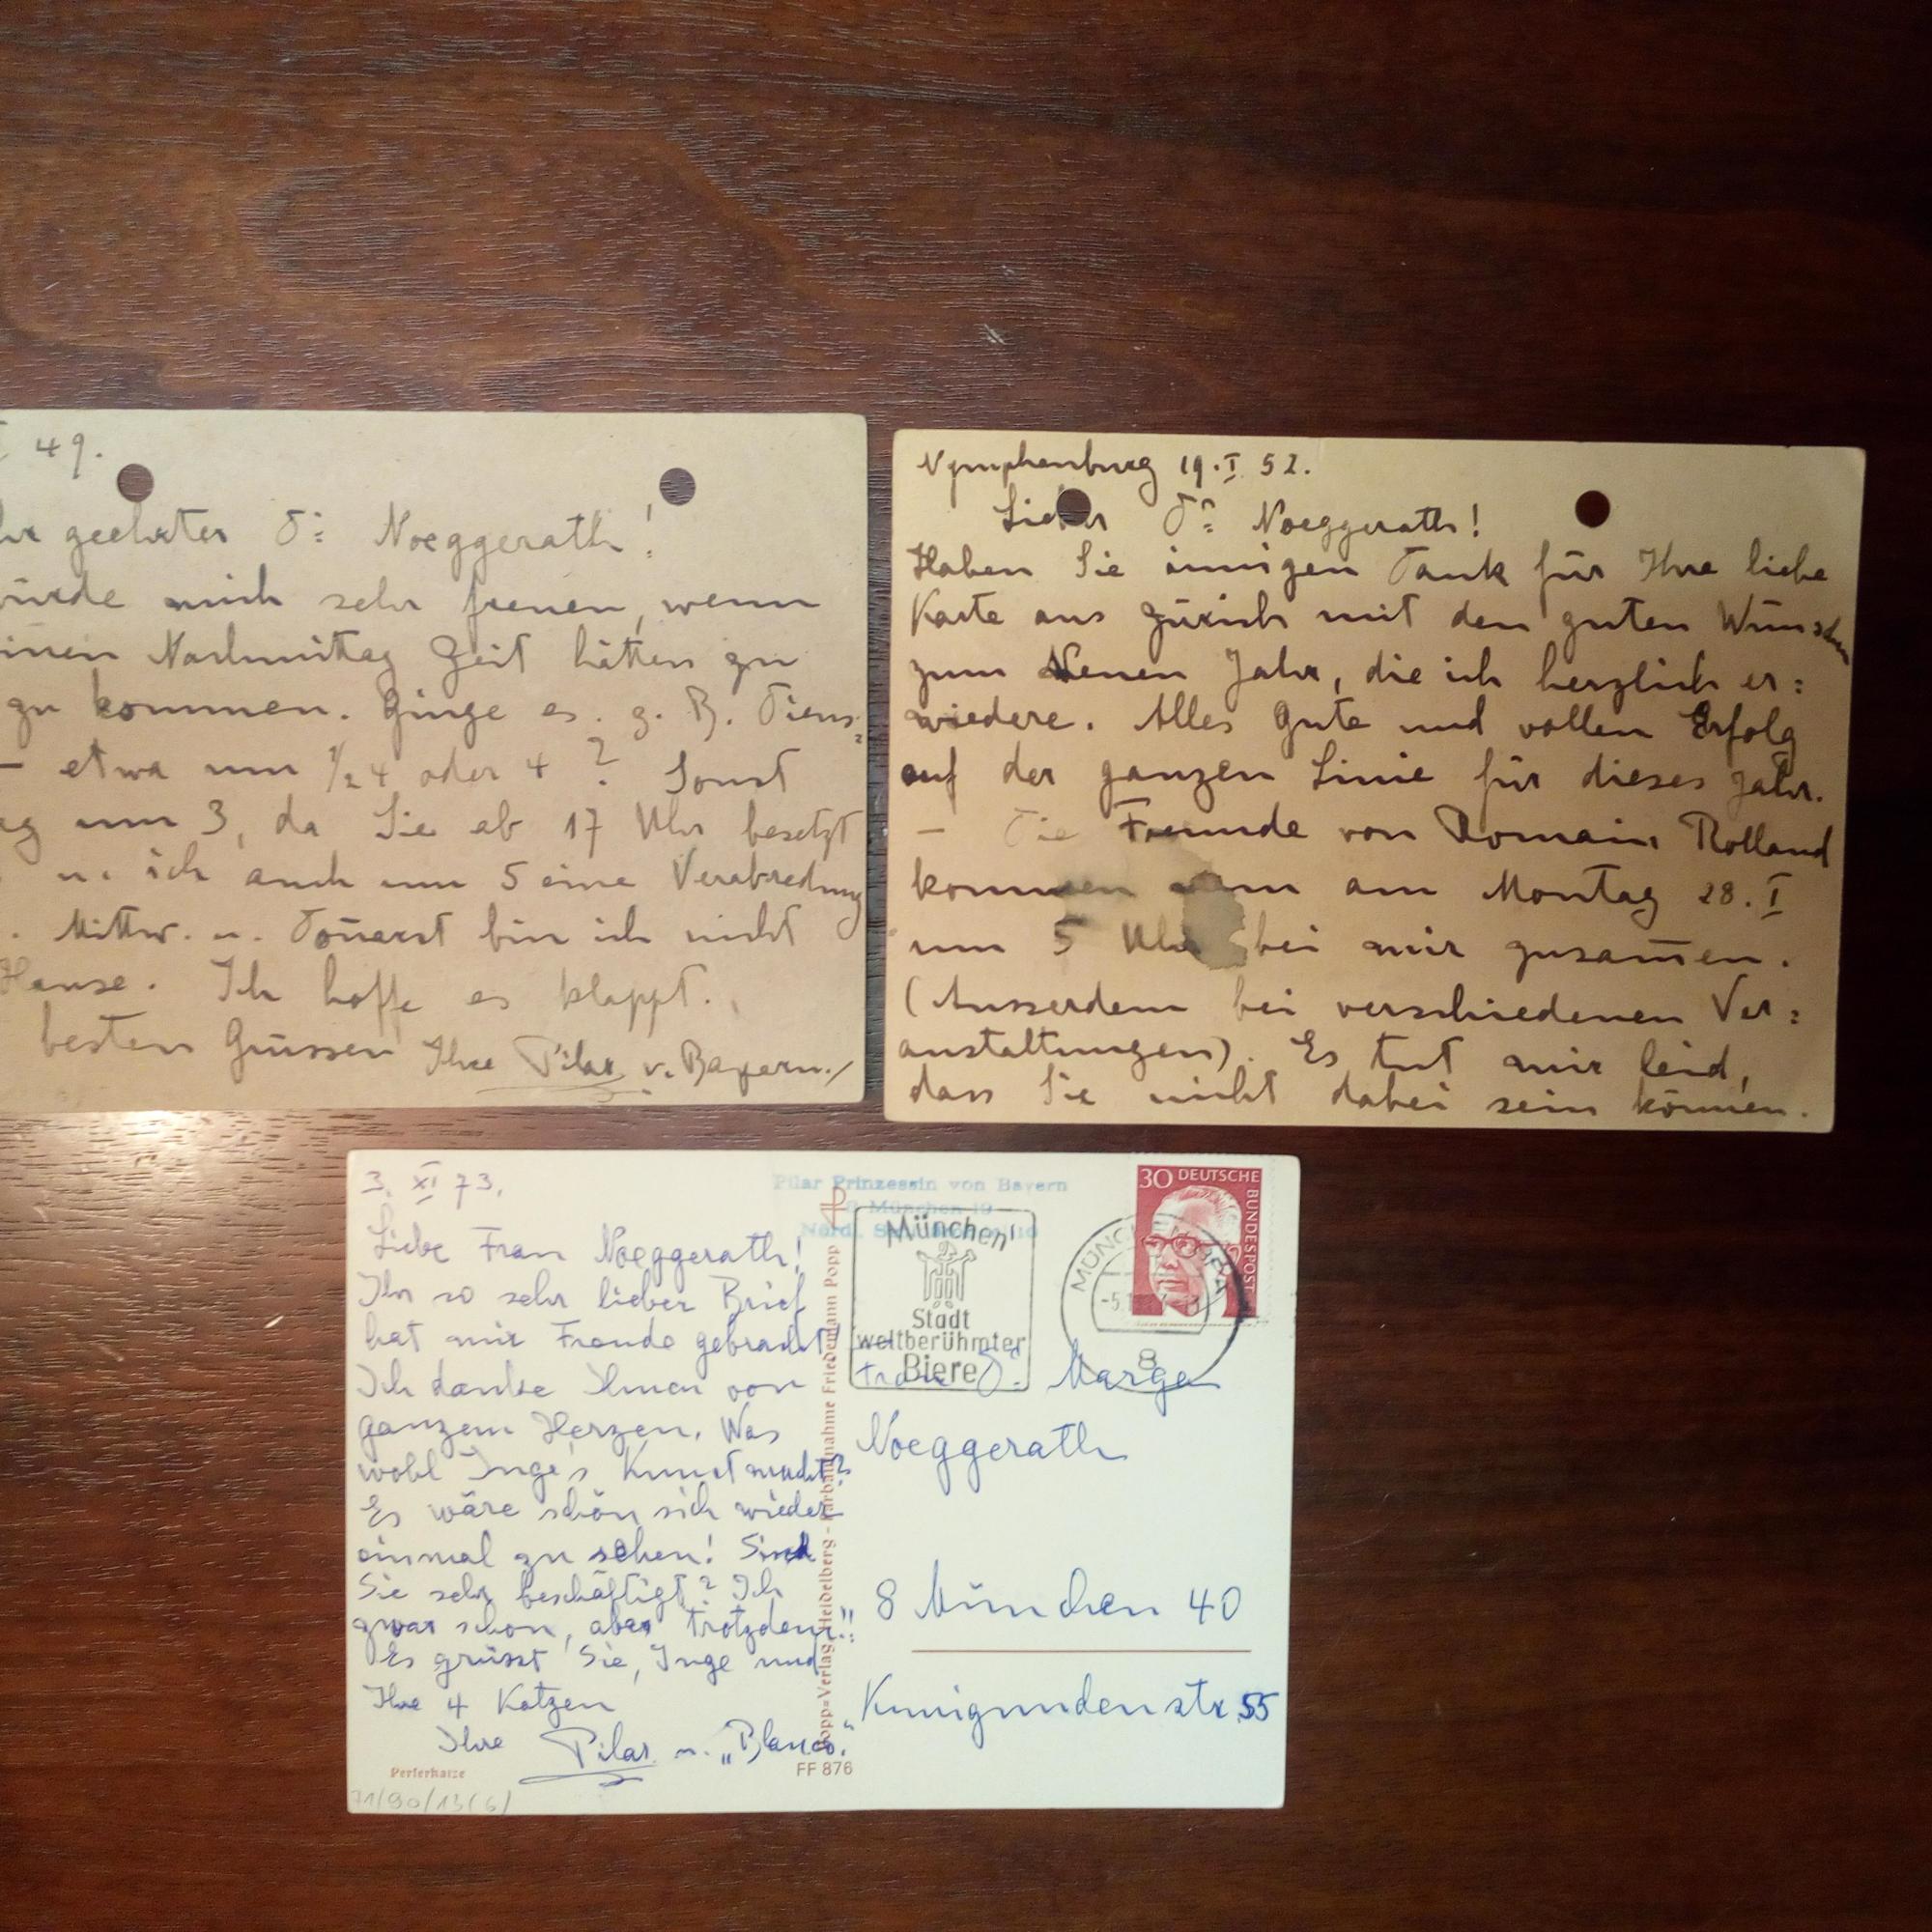 49.
geehrter Dr. Noeggerath!
würde mich sehr freuen, wenn
einen Nachmittag Zeit hätten zu
zu kommen. Ginge es z. B. Diens=
– etwa um ½ 4 oder 4 ? Sonst
um 3, da Sie ab 17 Uhr besetzt
u. ich auch um 5 eine Verabredung
. Mittw. u. Don̄erst bin ich nicht
Hause. Ich hoffe es klappt.
besten Grüssen Ihre Pilar v. Bayern.
Nymphenburg 19. I. 52.
Lieber Dr. Noeggerath!
Haben Sie innigen Dank für Ihre liebe
Karte aus Zürich mit den guten Wünschen
zum Neuen Jahr, die ich herzlich er=
wiedere. Alles Gute und vollen Erfolg
auf der ganzen Linie für dieses Jahr.
– Die Freunde von Romain Rolland
kommen am Montag 28. I
um 5 Uhr bei mir zusam̄en.
(Ausserdem bei verschiedenen Ver=
anstaltungen). Es tut mir leid,
dass Sie nicht dabei sein können.
3. XI 73.
Liebe Frau Noeggerath!
Ihr so sehr lieber Brief
hat mir Freude gebracht!
Ich danke Ihnen von
ganzem Herzen. Was
wohl Inge's Kunst macht?
Es wäre schön sich wieder
einmal zu sehen! Sind
Sie sehr beschäftigt? Ich
zwar schon, aber trotzdem!!
Es grüsst Sie, Inge und
Ihre 4 Katzen
Ihre Pilar u. „Blanco."
Perserkatze
71/90/13(6)
Popp=Verlag Heidelberg - Farbaufnahme Friedemann Popp
FF 876
Pilar Prinzessin von Bayern
8 München 19
München
Stadt
weltberühmter
Biere
30 DEUTSCHE
BUNDESPOST
MÜNCHEN
-5.
8
Frau Dr. Marga
Noeggerath
8 München 40
Kunigundenstr. 55